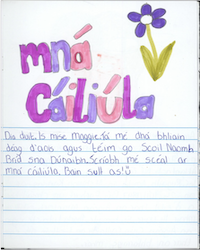 mná
Cáiliúla
Dia duit. Is mise Maggie. Tá mé dhá bhliain
déag d'aois agus téim go Scoil Naomh
Bríd sna Dúnaibh. Scríobh mé scéal ar
mná cáiliúla. Bain sult as!